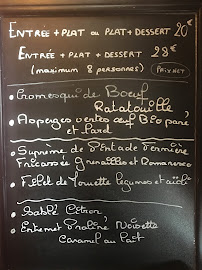 ENTREE + PLAT ou PLAT + DESSERT 20€
ENTRÉE + PLAT + DESSERT 28€
(maximum 8 personnes) PRIX NET
• Cromesqui de Boeuf
Ratatouille
• Asperges vertes oeuf Bio pané
et Lard
• Suprême de Pintade Fermière
Fricassée Grenailles et Romanesco
• Filet de Rouette légumes et aïoli
• Sablé Citron
• Entremet Praliné Noisette
Caramel au lait